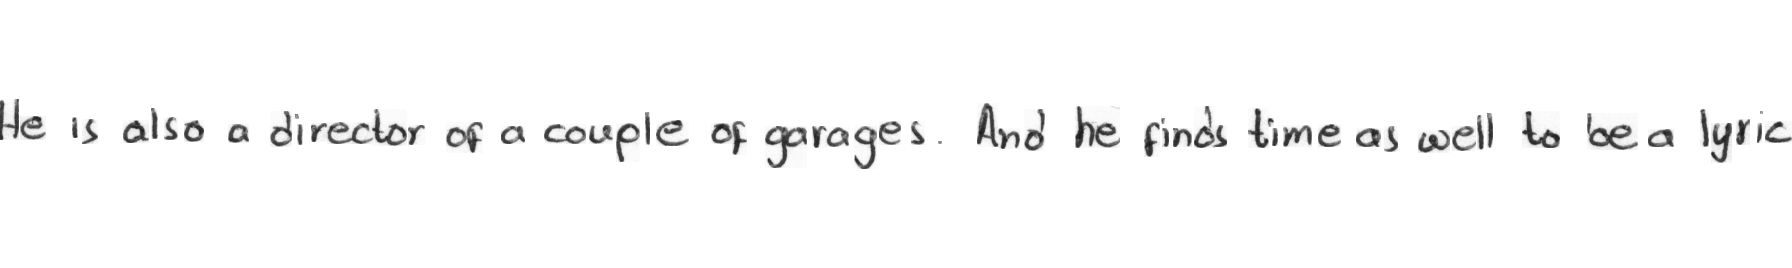 He is also a director of a couple of garages. And he finds time as well to be a lyric